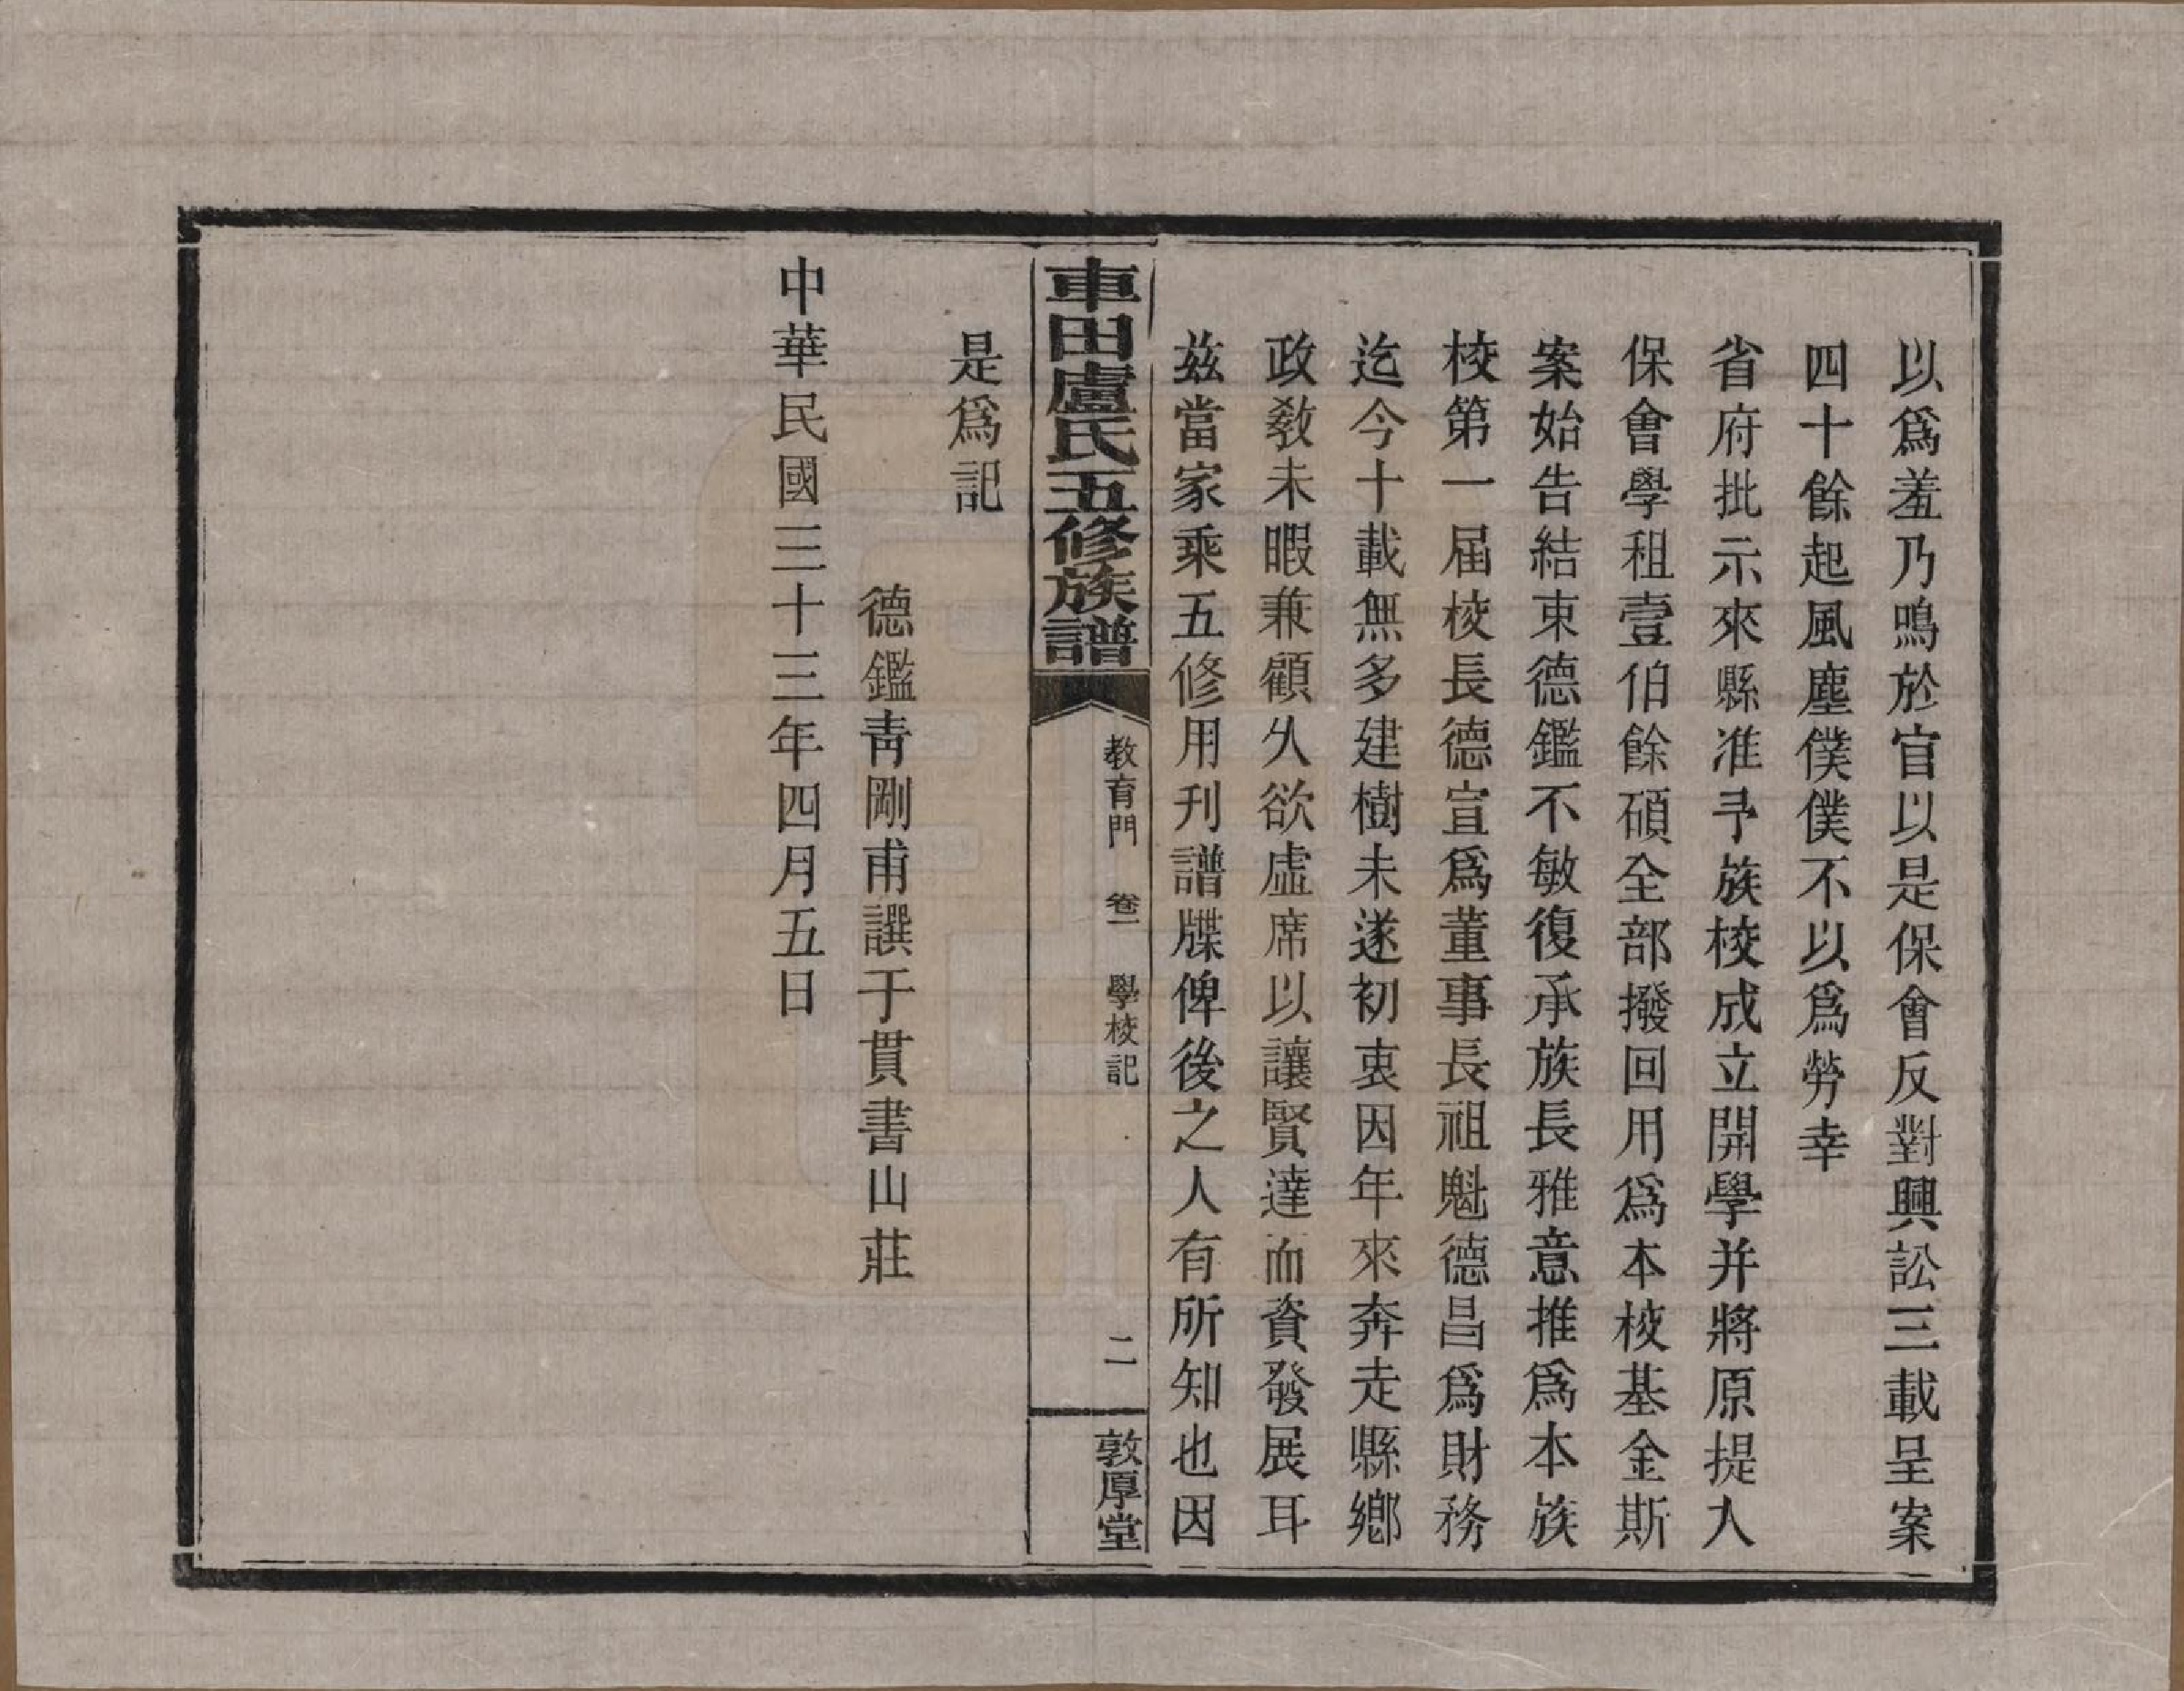 以爲羞乃鳴於官以是保會反對興訟三載呈案
四十餘起風塵僕僕不以爲勞幸
省府批示來縣准予族校成立開學并將原提入
保會學租壹伯餘碩全部撥回用爲本校基金斯
案始告結束德鑑不敏復承族長雅意推爲本族
校第一屆校長德宣爲董事長祖魁德昌爲財務
迄今十載無多建樹未遂初衷因年來奔走縣鄉
政教未暇兼顧久欲虛席以讓賢達而資發展耳
茲當家乘五修用刊譜牒俾後之人有所知也因
車田盧氏五修族譜
教育門 卷一 學校記 二
敦厚堂
是爲記
德鑑靑剛甫譔于貫書山莊
中華民國三十三年四月五日